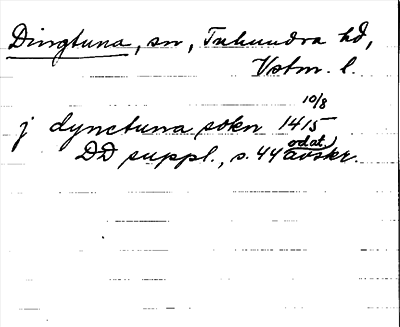 Dingtuna, sn, Tuhundra hd,
Vstm. l.
10/8
j dynctuna sokn 1415
odat
DD suppl., s. 44 avskr.